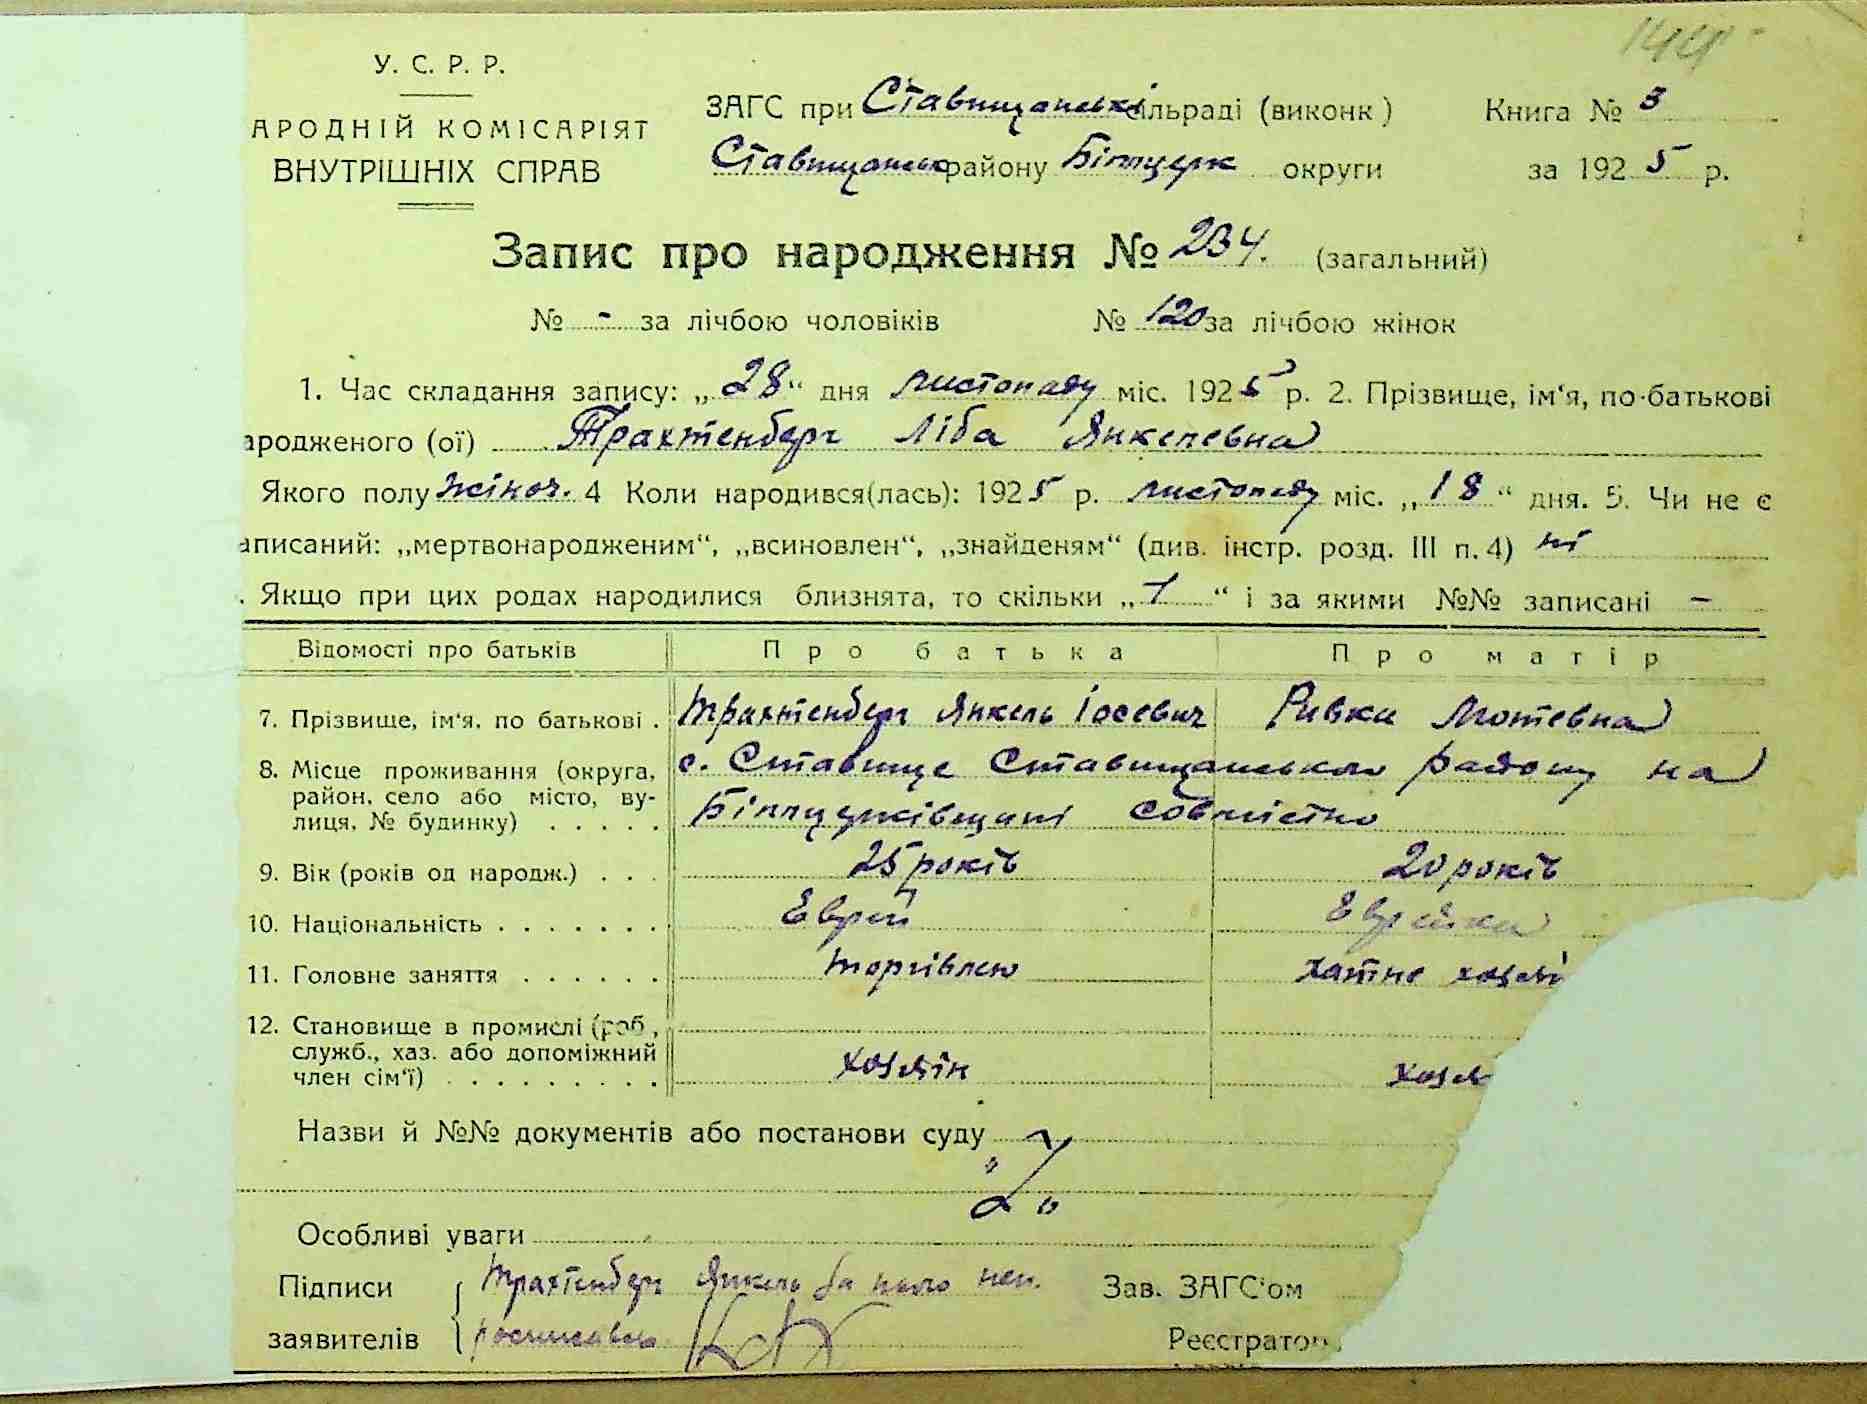 144
У. С. Р. Р.
АРОДНІЙ КОМІСАРІЯТ
ВНУТРІШНІХ СПРАВ
ЗАГС при Ставищанські сільраді (виконк) Книга № 3
Ставищанськ району Білоцерк округи за 1925 р.
Запис про народження № 234. (загальний)
№ - за лічбою чоловіків № 120 за лічбою жінок
1. Час складання запису: „28“ дня листопаду міс. 1925 р. 2. Прізвище, ім'я, по-батькові
ародженого (ої) Трахтенберг Ліба Янкелевна
Якого полу жіноч. 4 Коли народився(лась): 1925 р. листопаду міс. „18“ дня. 5. Чи не є
аписаний: „мертвонародженим“, „всиновлен“, „знайденям“ (див. інстр. розд. III п. 4) ні
. Якщо при цих родах народилися близнята, то скільки „1“ і за якими №№ записані -
Відомості про батьків Про батька Про матір
7. Прізвище, ім'я, по батькові . Трахтенберг Янкель Іосевич Ривка Мотевна
8. Місце проживання (округа, с. Ставище Ставищанського району на
район, село або місто, ву-
лиця, № будинку) . . . . . Білоцерківщині совмістно
9. Вік (років од народж.) . . . 25 років 20 років
10. Національність . . . . . . . Еврей Еврейка
11. Головне заняття . . . . . . торгівлею хатне хазяі
12. Становище в промислі (роб.,
служб., хаз. або допоміжний хазяін хазя
член сім'ї) . . . . . . . . .
Назви й №№ документів або постанови суду
Особливі уваги
Підписи Трахтенберг Янкель за його неп. Зав. ЗАГС'ом
заявителів росписався Реєстратор